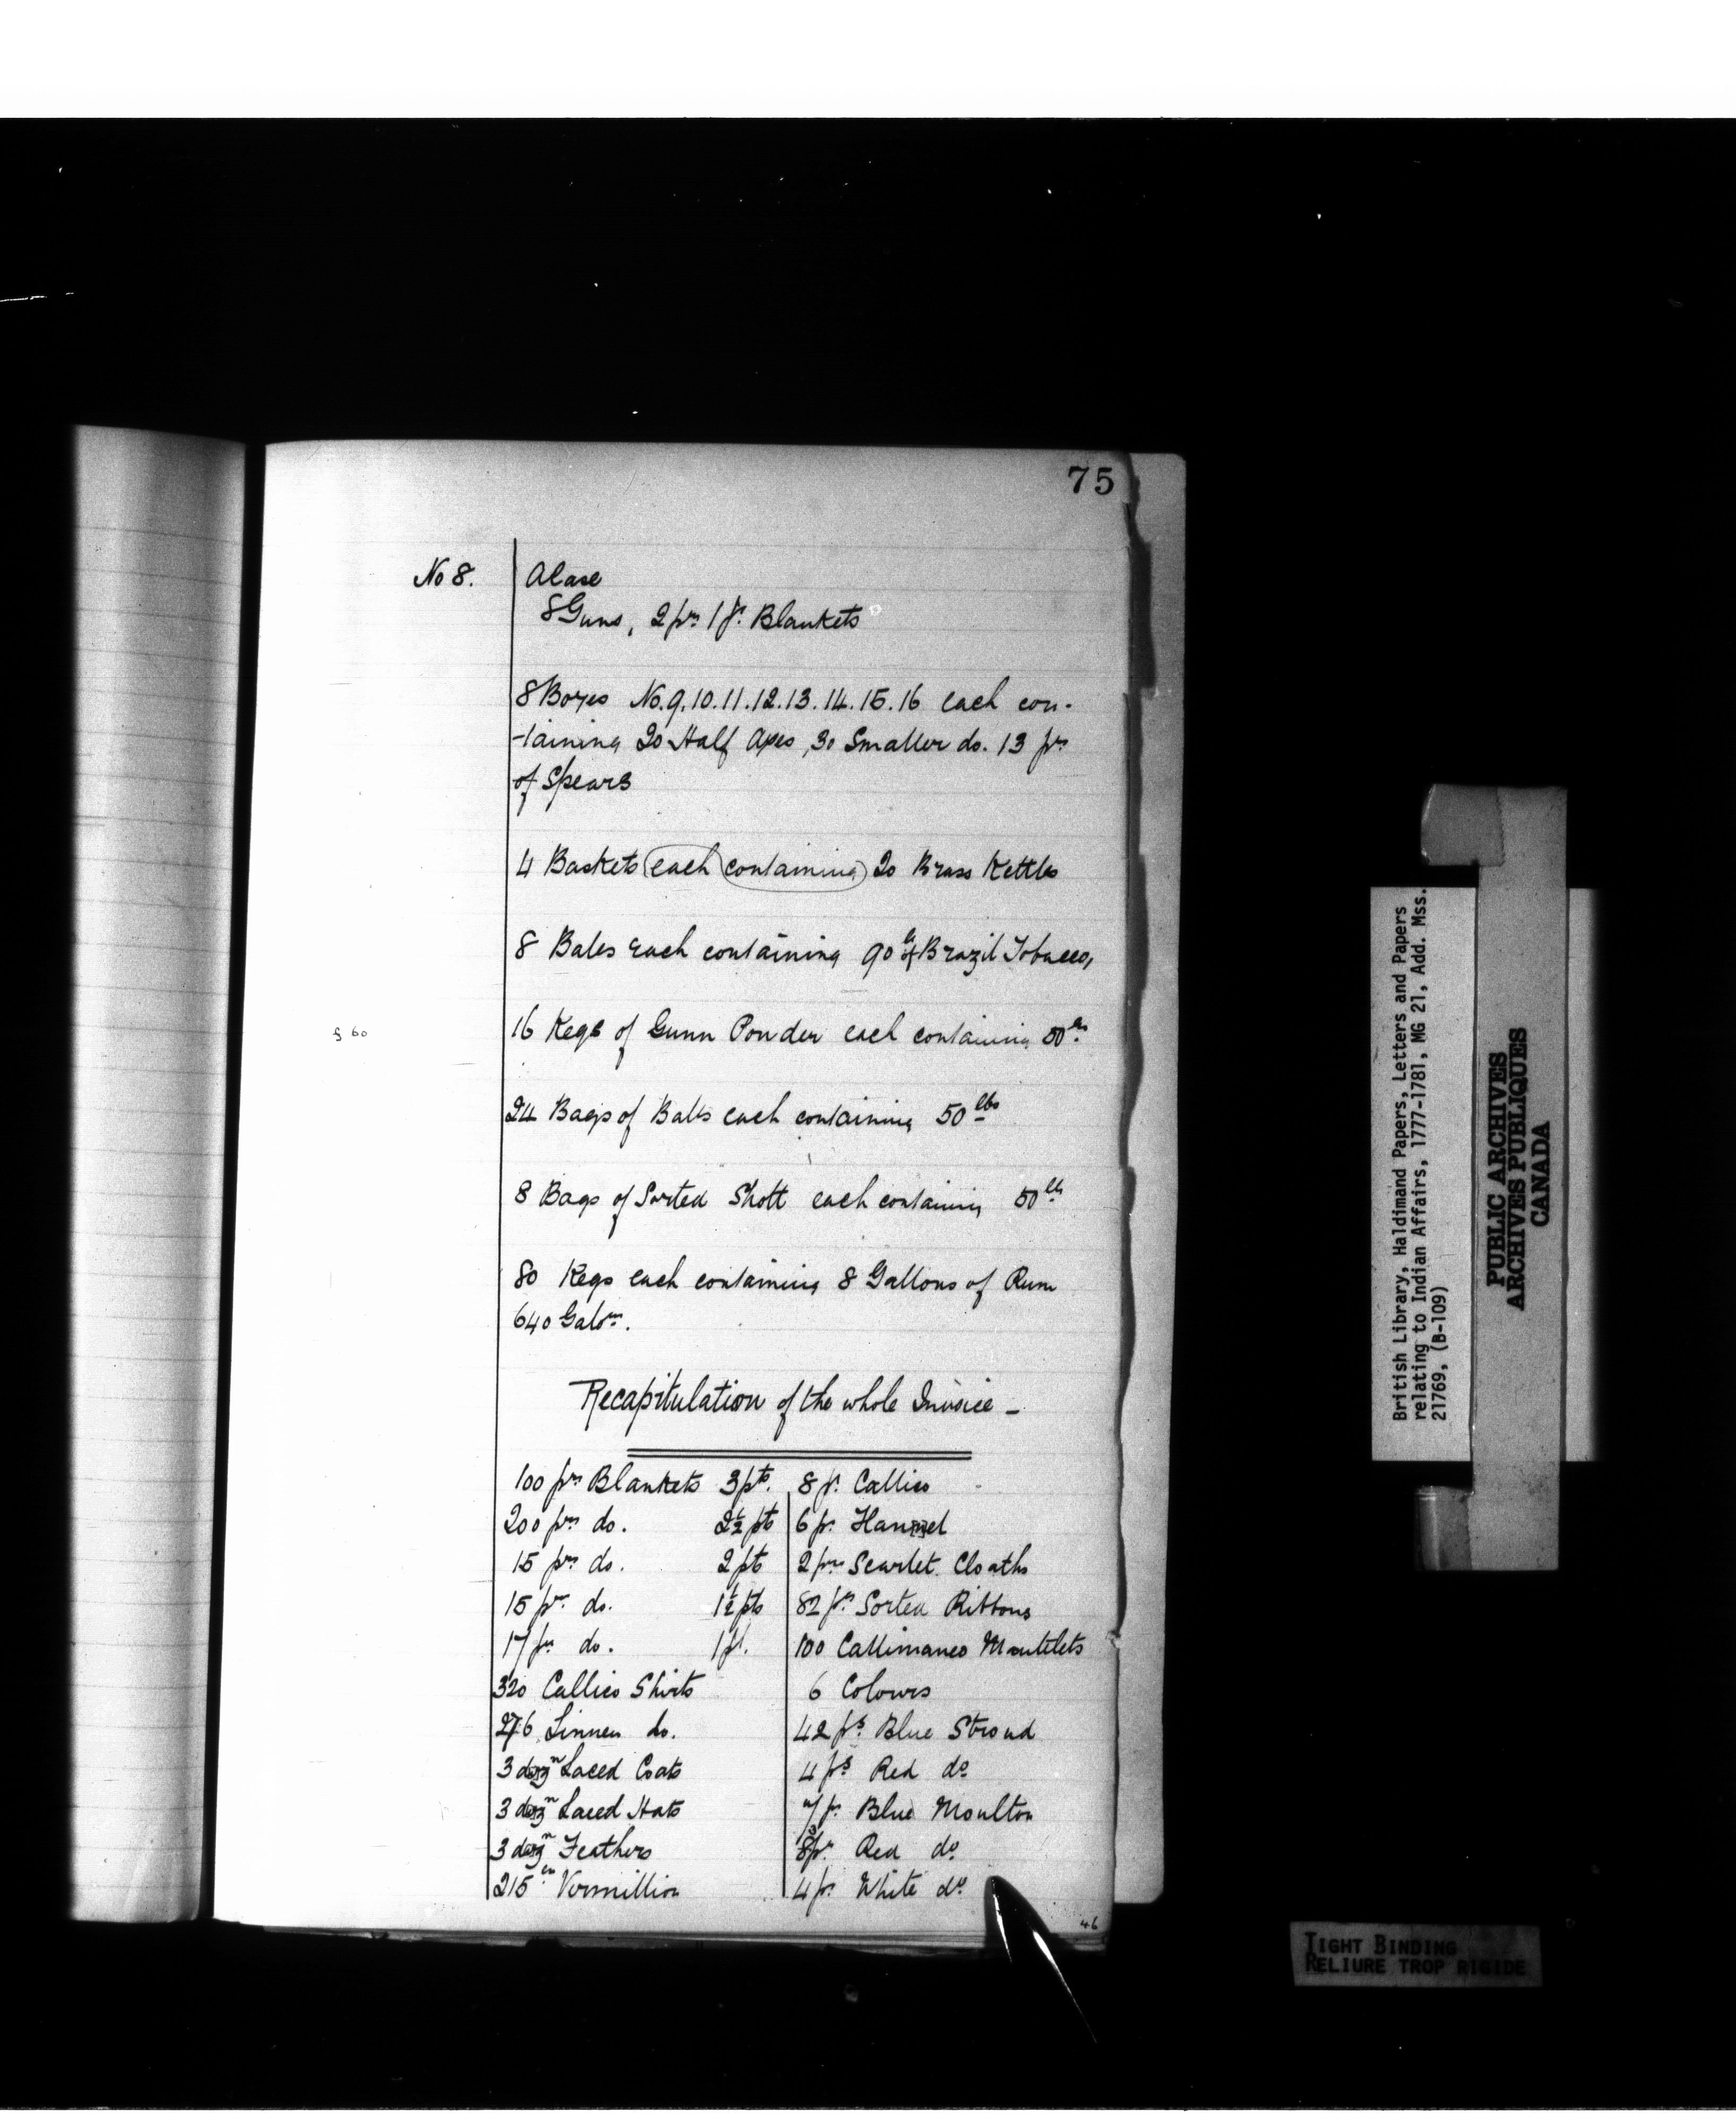 75
No 8. A Case
8 Guns, 2 prs 1 p. Blankets
8 Boxes No. 9. 10. 11. 12. 13. 14. 15. 16 each con-
-taining 20 Half Axes, 30 Smaller do. 13 prs
of Spears
4 Baskets each containing 20 Brass Kettles
8 Bales each containing 90 lb of Brazil Tobacco,
16 Kegs of Gunn Powder each containing 50 lbs
24 Bags of Balls each containing 50 lbs
8 Bags of Sorted Shott each containing 50 lbs
80 Kegs each containing 8 Gallons of Rum
640 Galons.
Recapitulation of the whole Invoice -
100 prs Blankets 3 pts. 8 p. Callico
200 prs do. 2½ pts 6 ps. Flannel
15 prs do. 2 pts 2 prs Scarlet Cloaths
15 pr. do. 1½ pts 82 ps. Sorted Ribbons
17 prs do. 1 pt. 100 Callimanco Mantelets
320 Callico Shirts 6 Colours
276 Linnen do. 42 ps. Blue Stroud
3 dozn Laced Coats 4 ps Red do
3 dozn Laced Hats ps. Blue Moulton
3 dozn Feathers ps. Red do.
215 lbs Vermillion 4 ps. White do.
46
§ 60
British Library, Haldimand Papers, Letters and Papers
relating to Indian Affairs, 1777-1781, MG 21, Add. Mss.
21769, (B-109)
PUBLIC ARCHIVES
ARCHIVES PUBLIQUES
CANADA
TIGHT BINDING
RELIURE TROP RIGIDE